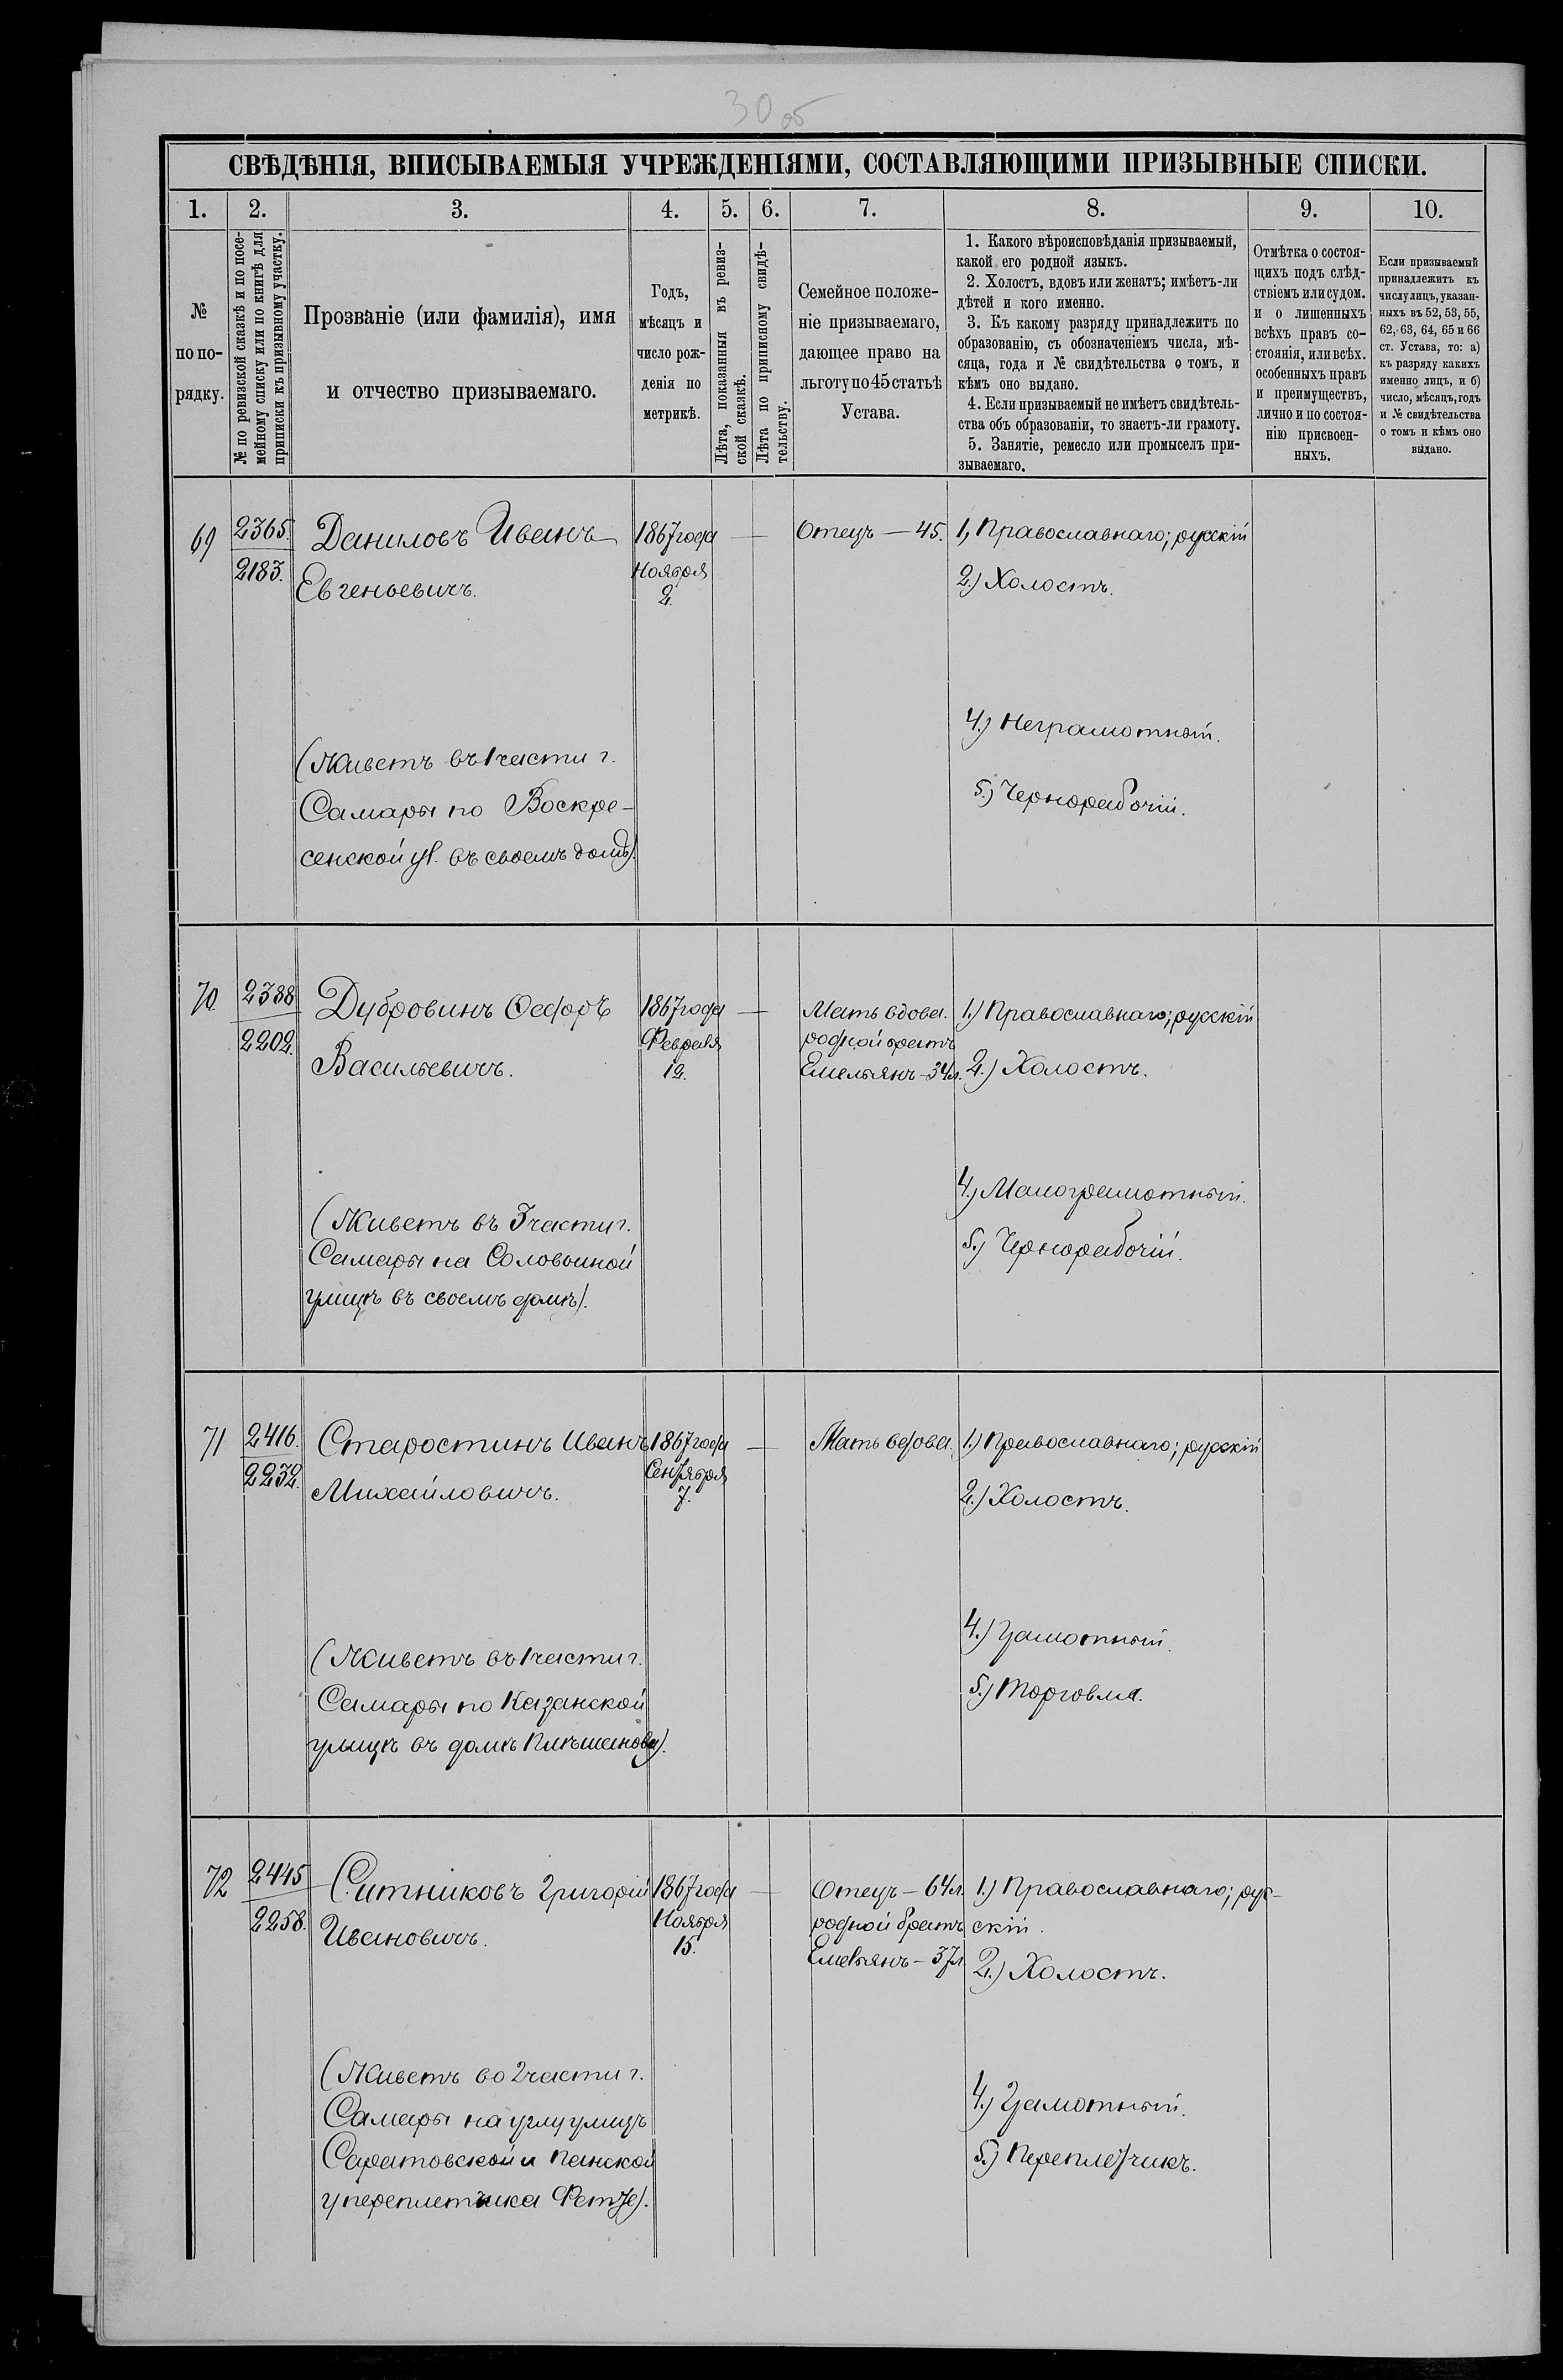 30 об
СВѢДѢНІЯ, ВПИСЫВАЕМЫЯ УЧРЕЖДЕНІЯМИ, СОСТАВЛЯЮЩИМИ ПРИЗЫВНЫЕ СПИСКИ.
1. 2. 3. 4. 5. 6. 7. 8. 9. 10.
№
по по-
рядку.
№ по ревизской сказкѣ и по посе-
мейному списку или по книгѣ для
приписки къ призывному участку.
Прозваніе (или фамилія), имя
и отчество призываемаго.
Годъ,
мѣсяцъ и
число рож-
денія по
метрикѣ.
Лѣта, показанныя въ ревиз-
ской сказкѣ.
Лѣта по приписному свидѣ-
тельству.
Семейное положе-
ніе призываемаго,
дающее право на
льготу по 45 статьѣ
Устава.
1. Какого вѣроисповѣданія призываемый,
какой его родной языкъ.
2. Холостъ, вдовъ или женатъ; имѣетъ-ли
дѣтей и кого именно.
3. Къ какому разряду принадлежитъ по
образованію, съ обозначеніемъ числа, мѣ-
сяца, года и № свидѣтельства о томъ, и
кѣмъ оно выдано.
4. Если призываемый не имѣетъ свидѣтель-
ства объ образованіи, то знаетъ-ли грамоту.
5. Занятіе, ремесло или промыселъ при-
зываемаго.
Отмѣтка о состоя-
щихъ подъ слѣд-
ствіемъ или судом.
и о лишенныхъ
всѣхъ правъ со-
стоянія, или всѣх.
особенныхъ правъ
и преимуществъ,
лично и по состоя-
нію присвоен-
ныхъ.
Если призываемый
принадлежитъ къ
числу лицъ, указан-
ныхъ въ 52, 53, 55,
62, 63, 64, 65 и 66
ст. Устава, то: а)
къ разряду какихъ
именно лицъ, и б)
число, мѣсяцъ, годъ
и № свидѣтельства
о томъ и кѣмъ оно
выдано.
69
2365.
2183.
Даниловъ Иванъ
Евгеньевичъ.
(Живетъ въ 1 части г.
Самары по Воскре-
сенской ул. въ своемъ домѣ).
1867 года
Ноября
2.
—
Отецъ — 45.
1, Православнаго; русскій
2.) Холостъ.
4.) Неграмотный.
5.) Чернорабочій.
70
2388
2202.
Дубровинъ Ѳедоръ
Васильевичъ.
(Живетъ въ 3 части г.
Самары на Соловьиной
улицѣ въ своемъ домѣ).
1867 года
Февраля
12.
—
Мать вдова.
родной братъ
Емельянъ - 34 л.
1.) Православнаго; русскій
2.) Холостъ.
4.) Малограмотный.
5.) Чернорабочій.
71
2416.
2232.
Старостинъ Иванъ
Михайловичъ.
(Живетъ въ 1 части г.
Самары по Казанской
улицѣ въ домѣ
1867 года
Сентября
7.
—
Мать вдова.
1.) Православнаго; русскій
2.) Холостъ.
4.) Грамотный.
5.) Торговля.
72
2445
2258.
Ситниковъ Григорій
Ивановичъ.
(Живетъ во 2 части г.
Самары на углу улицъ
Саратовской и Панской
у переплетчика
1867 года
Ноября
15.
—
Отецъ - 64 л.
родной братъ
Емельянъ - 37 л.
1.) Православнаго; рус-
скій.
2.) Холостъ.
4.) Грамотный.
5.) Переплетчикъ.